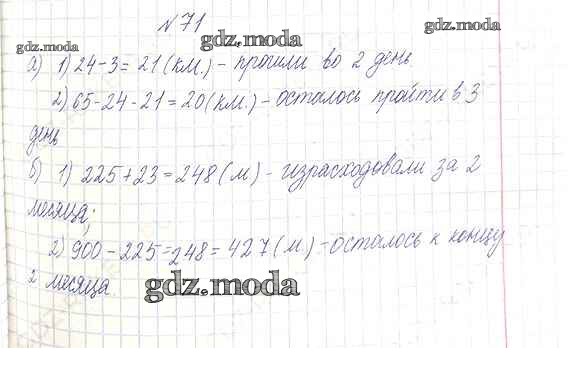 №71
gdz.moda
gdz.moda
а) 1) 24-3=21(км.) - прошли во 2 день
2) 65-24-21=20(км.) - осталось пройти в 3
день
б) 1) 225+23=248(м) - израсходовали за 2
месяца;
2) 900-225-248=427(м) - осталось к концу
2 месяца
gdz.moda